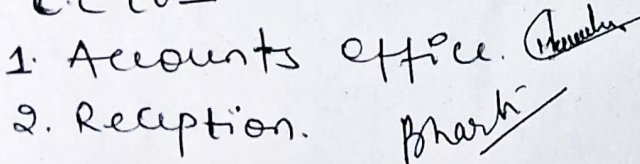 1. Accounts office.
2. Reception. Bharti